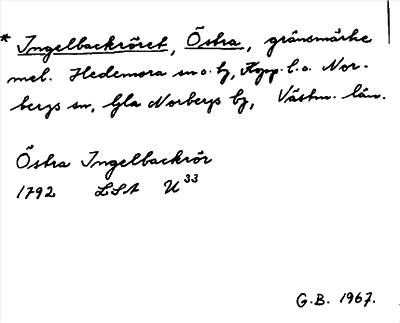 * Ingelbackröret, Östra, gränsmärke
mel. Hedemora sn o. hg, Kopp. l. o. Nor-
bergs sn, Gla Norbergs bg, Västm. län.
Östra Ingelbackrör
1792 LSA U 33
G.B. 1967.